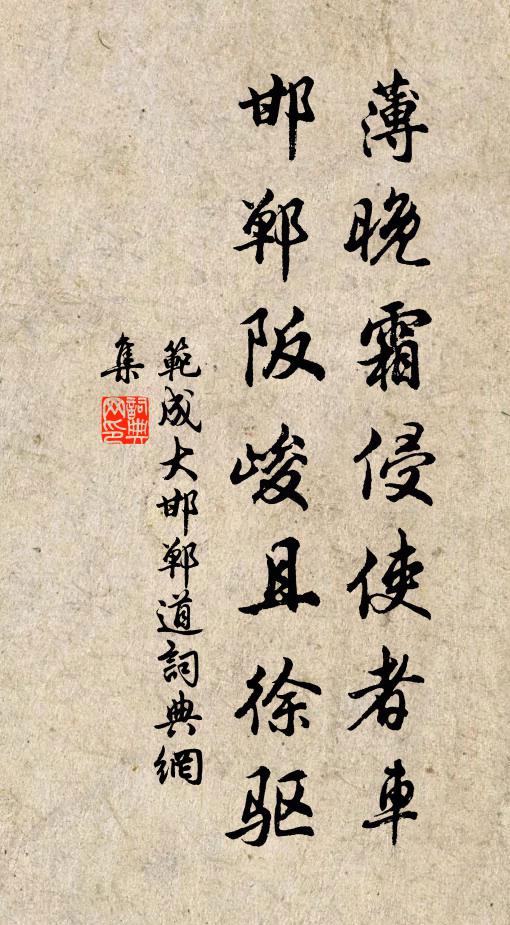 薄晚霜侵使者車
邯鄲阪峻且徐驱
範成大邯鄲道詞典網
集
詞典
网印